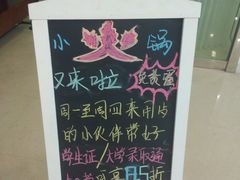 小 火 锅
又来啦 免费蛋
周一至周四来用占
的小伙伴带好
学生证/大学录取通
享85折